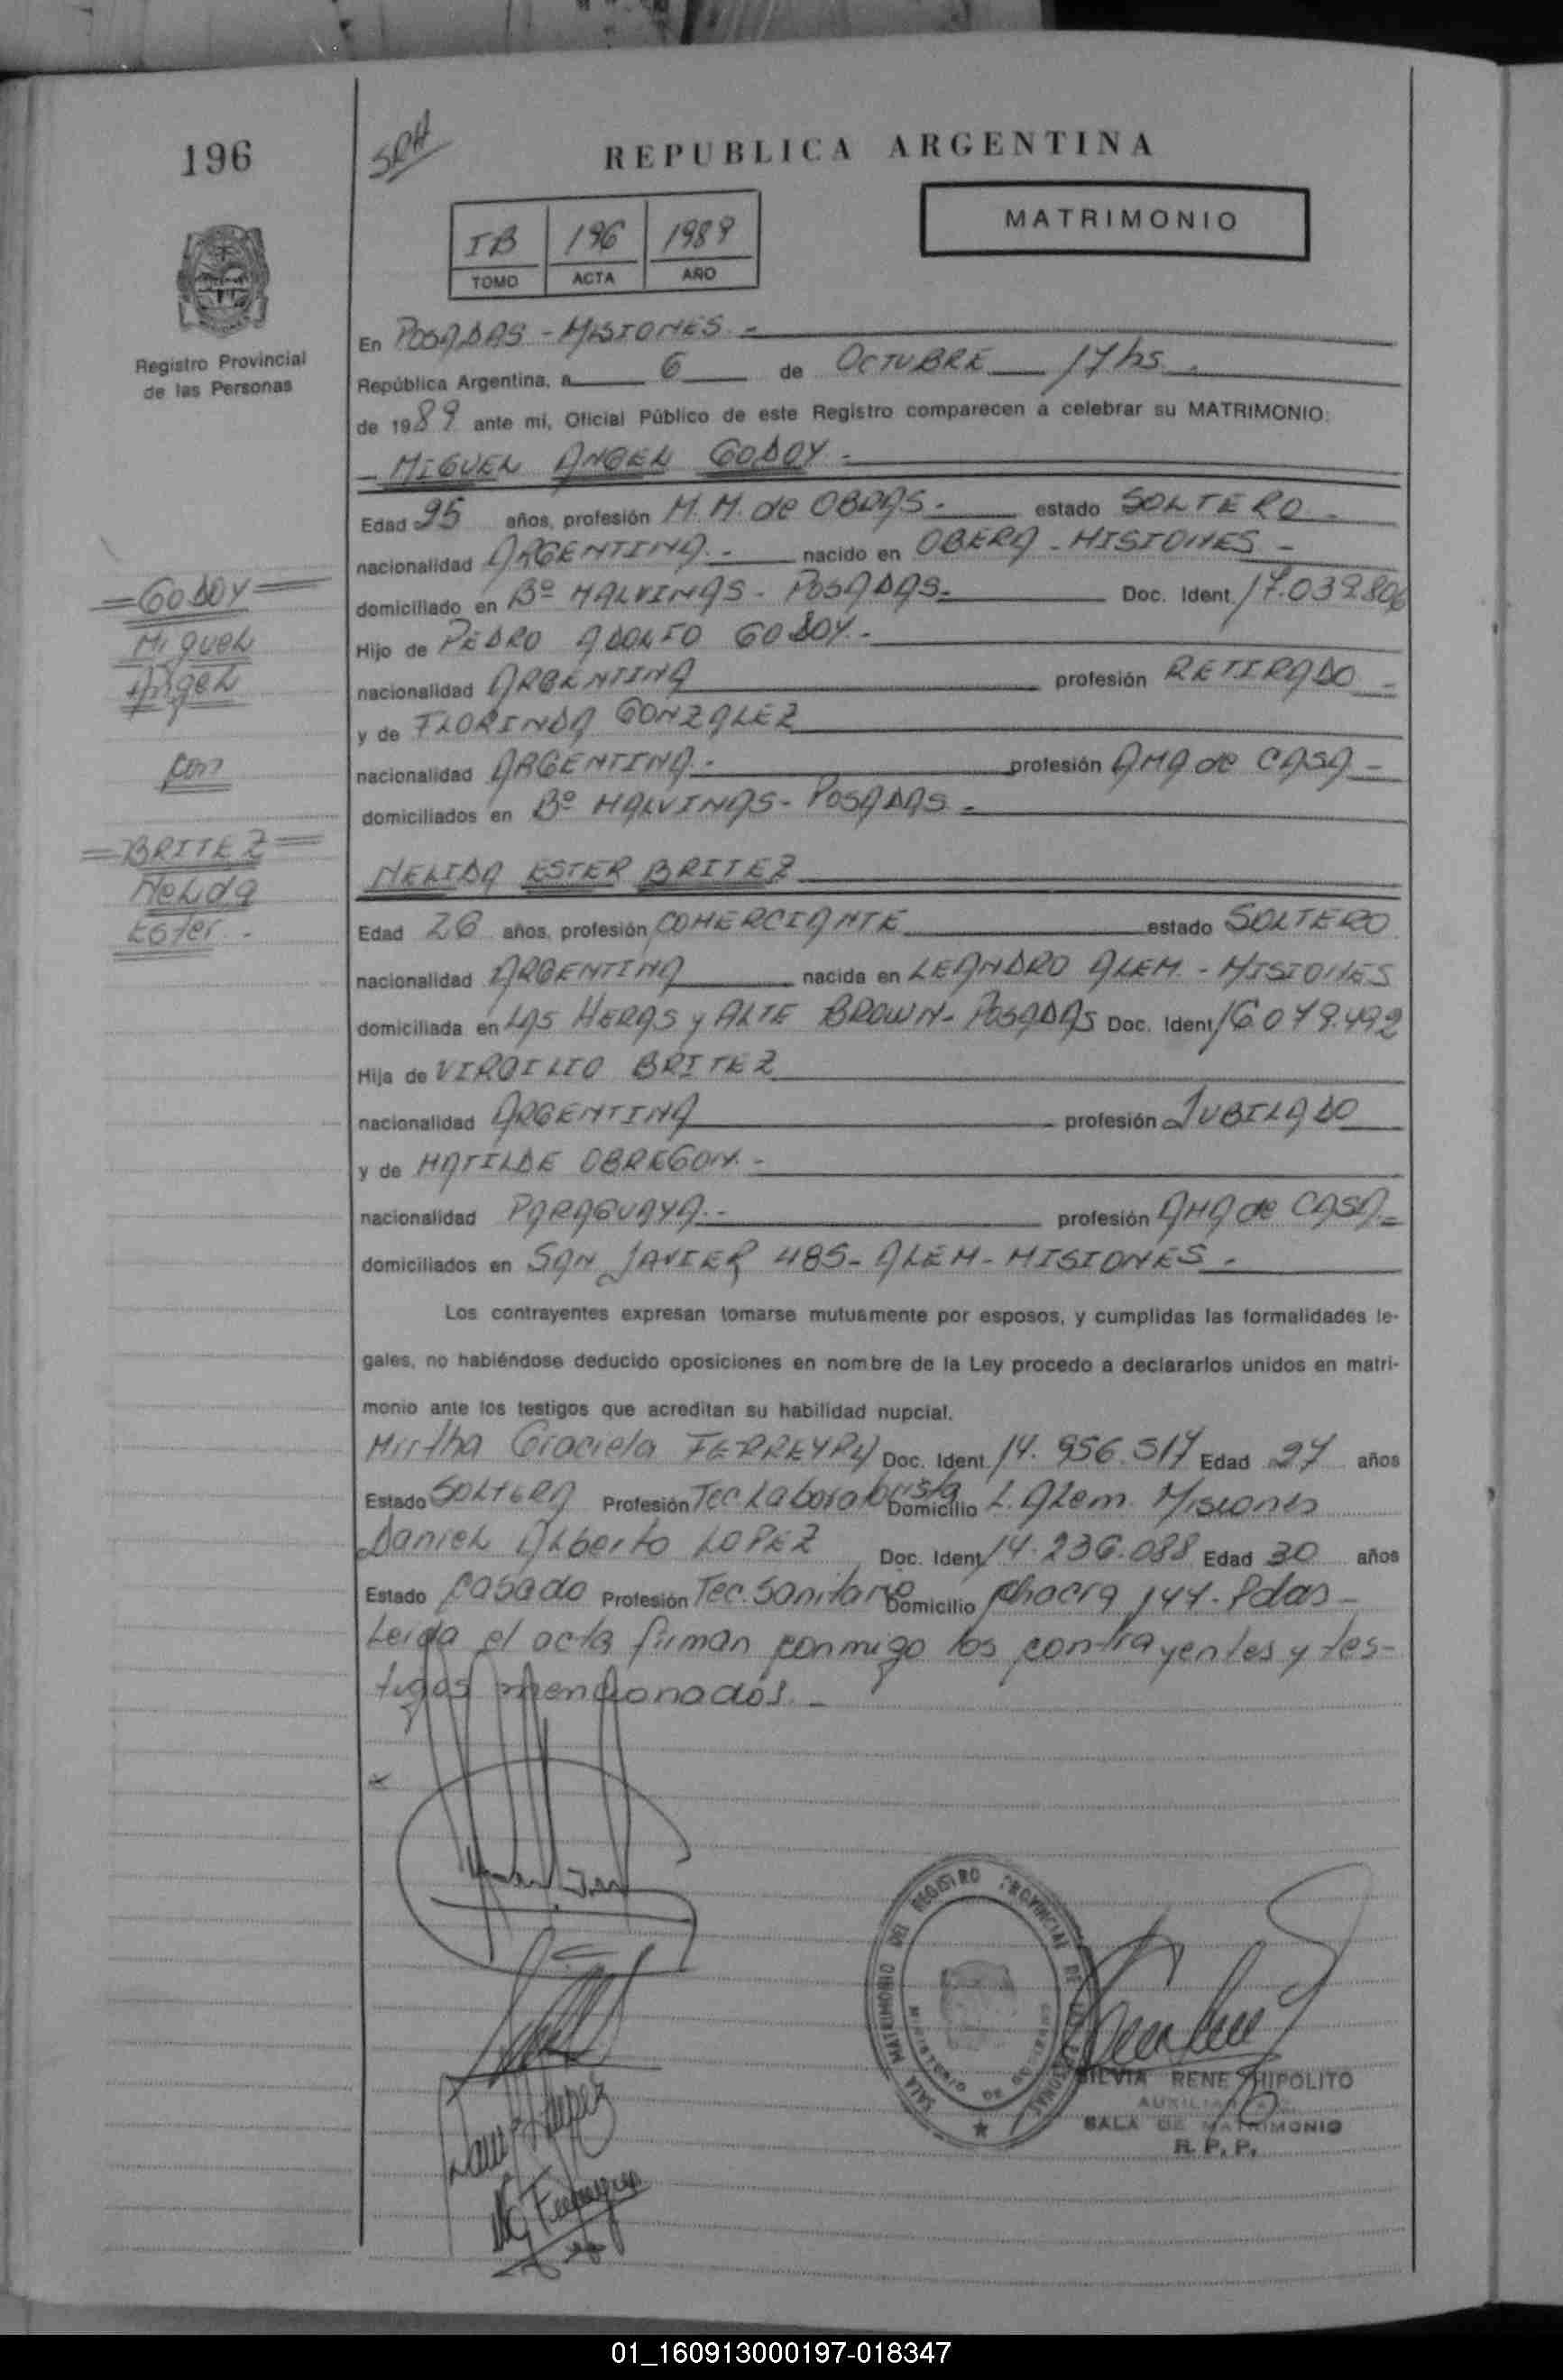 196
SRH
REPUBLICA ARGENTINA
IB 196 1989
TOMO ACTA AÑO
MATRIMONIO
Registro Provincial
de las Personas
En POSADAS - MISIONES -
República Argentina, a 6 de OCTUBRE 17 hs.
de 1989 ante mí, Oficial Público de este Registro comparecen a celebrar su MATRIMONIO:
- MIGUEL ANGEL GODOY -
Edad 25 años, profesión M.M. de OBRAS. estado SOLTERO -
nacionalidad ARGENTINA - nacido en OBERA - MISIONES -
domiciliado en Bº MALVINAS - POSADAS - Doc. Ident. 17.039.806
Hijo de PEDRO ADOLFO GODOY -
nacionalidad ARGENTINA profesión RETIRADO -
y de FLORINDA GONZALEZ
nacionalidad ARGENTINA - profesión AMA de CASA -
domiciliados en Bº MALVINAS - POSADAS -
= GODOY =
Miguel
Angel
con
= BRITEZ =
Nelida
Ester -
NELIDA ESTER BRITEZ
Edad 26 años, profesión COMERCIANTE estado SOLTERO
nacionalidad ARGENTINA nacida en LEANDRO ALEM - MISIONES
domiciliada en LAS HERAS y ALTE BROWN - POSADAS Doc. Ident. 16.079.492
Hija de VIRGILIO BRITEZ
nacionalidad ARGENTINA profesión JUBILADO
y de MATILDE OBREGON -
nacionalidad PARAGUAYA - profesión AMA de CASA -
domiciliados en SAN JAVIER 485 - ALEM - MISIONES -
Los contrayentes expresan tomarse mutuamente por esposos, y cumplidas las formalidades le-
gales, no habiéndose deducido oposiciones en nombre de la Ley procedo a declararlos unidos en matri-
monio ante los testigos que acreditan su habilidad nupcial.
Mirtha Graciela FERREYRA Doc. Ident. 14.956.517 Edad 27 años
Estado SOLTERA Profesión Tec Laboratorista Domicilio L. Alem. Misiones
Daniel Alberto LOPEZ Doc. Ident. 14.236.088 Edad 30 años
Estado casado Profesión Tec. Sanitario Domicilio chacra 147 - Pdas -
Leida el acta firman conmigo los contrayentes y tes-
tigos mencionados. -
SALA MATRIMONIO DEL REGISTRO PROVINCIAL DE LAS PERSONAS
MINISTERIO DE GOBIERNO
SILVIA RENE HIPOLITO
AUXILIAR
SALA DE MATRIMONIO
R. P. P.
01_160913000197-018347